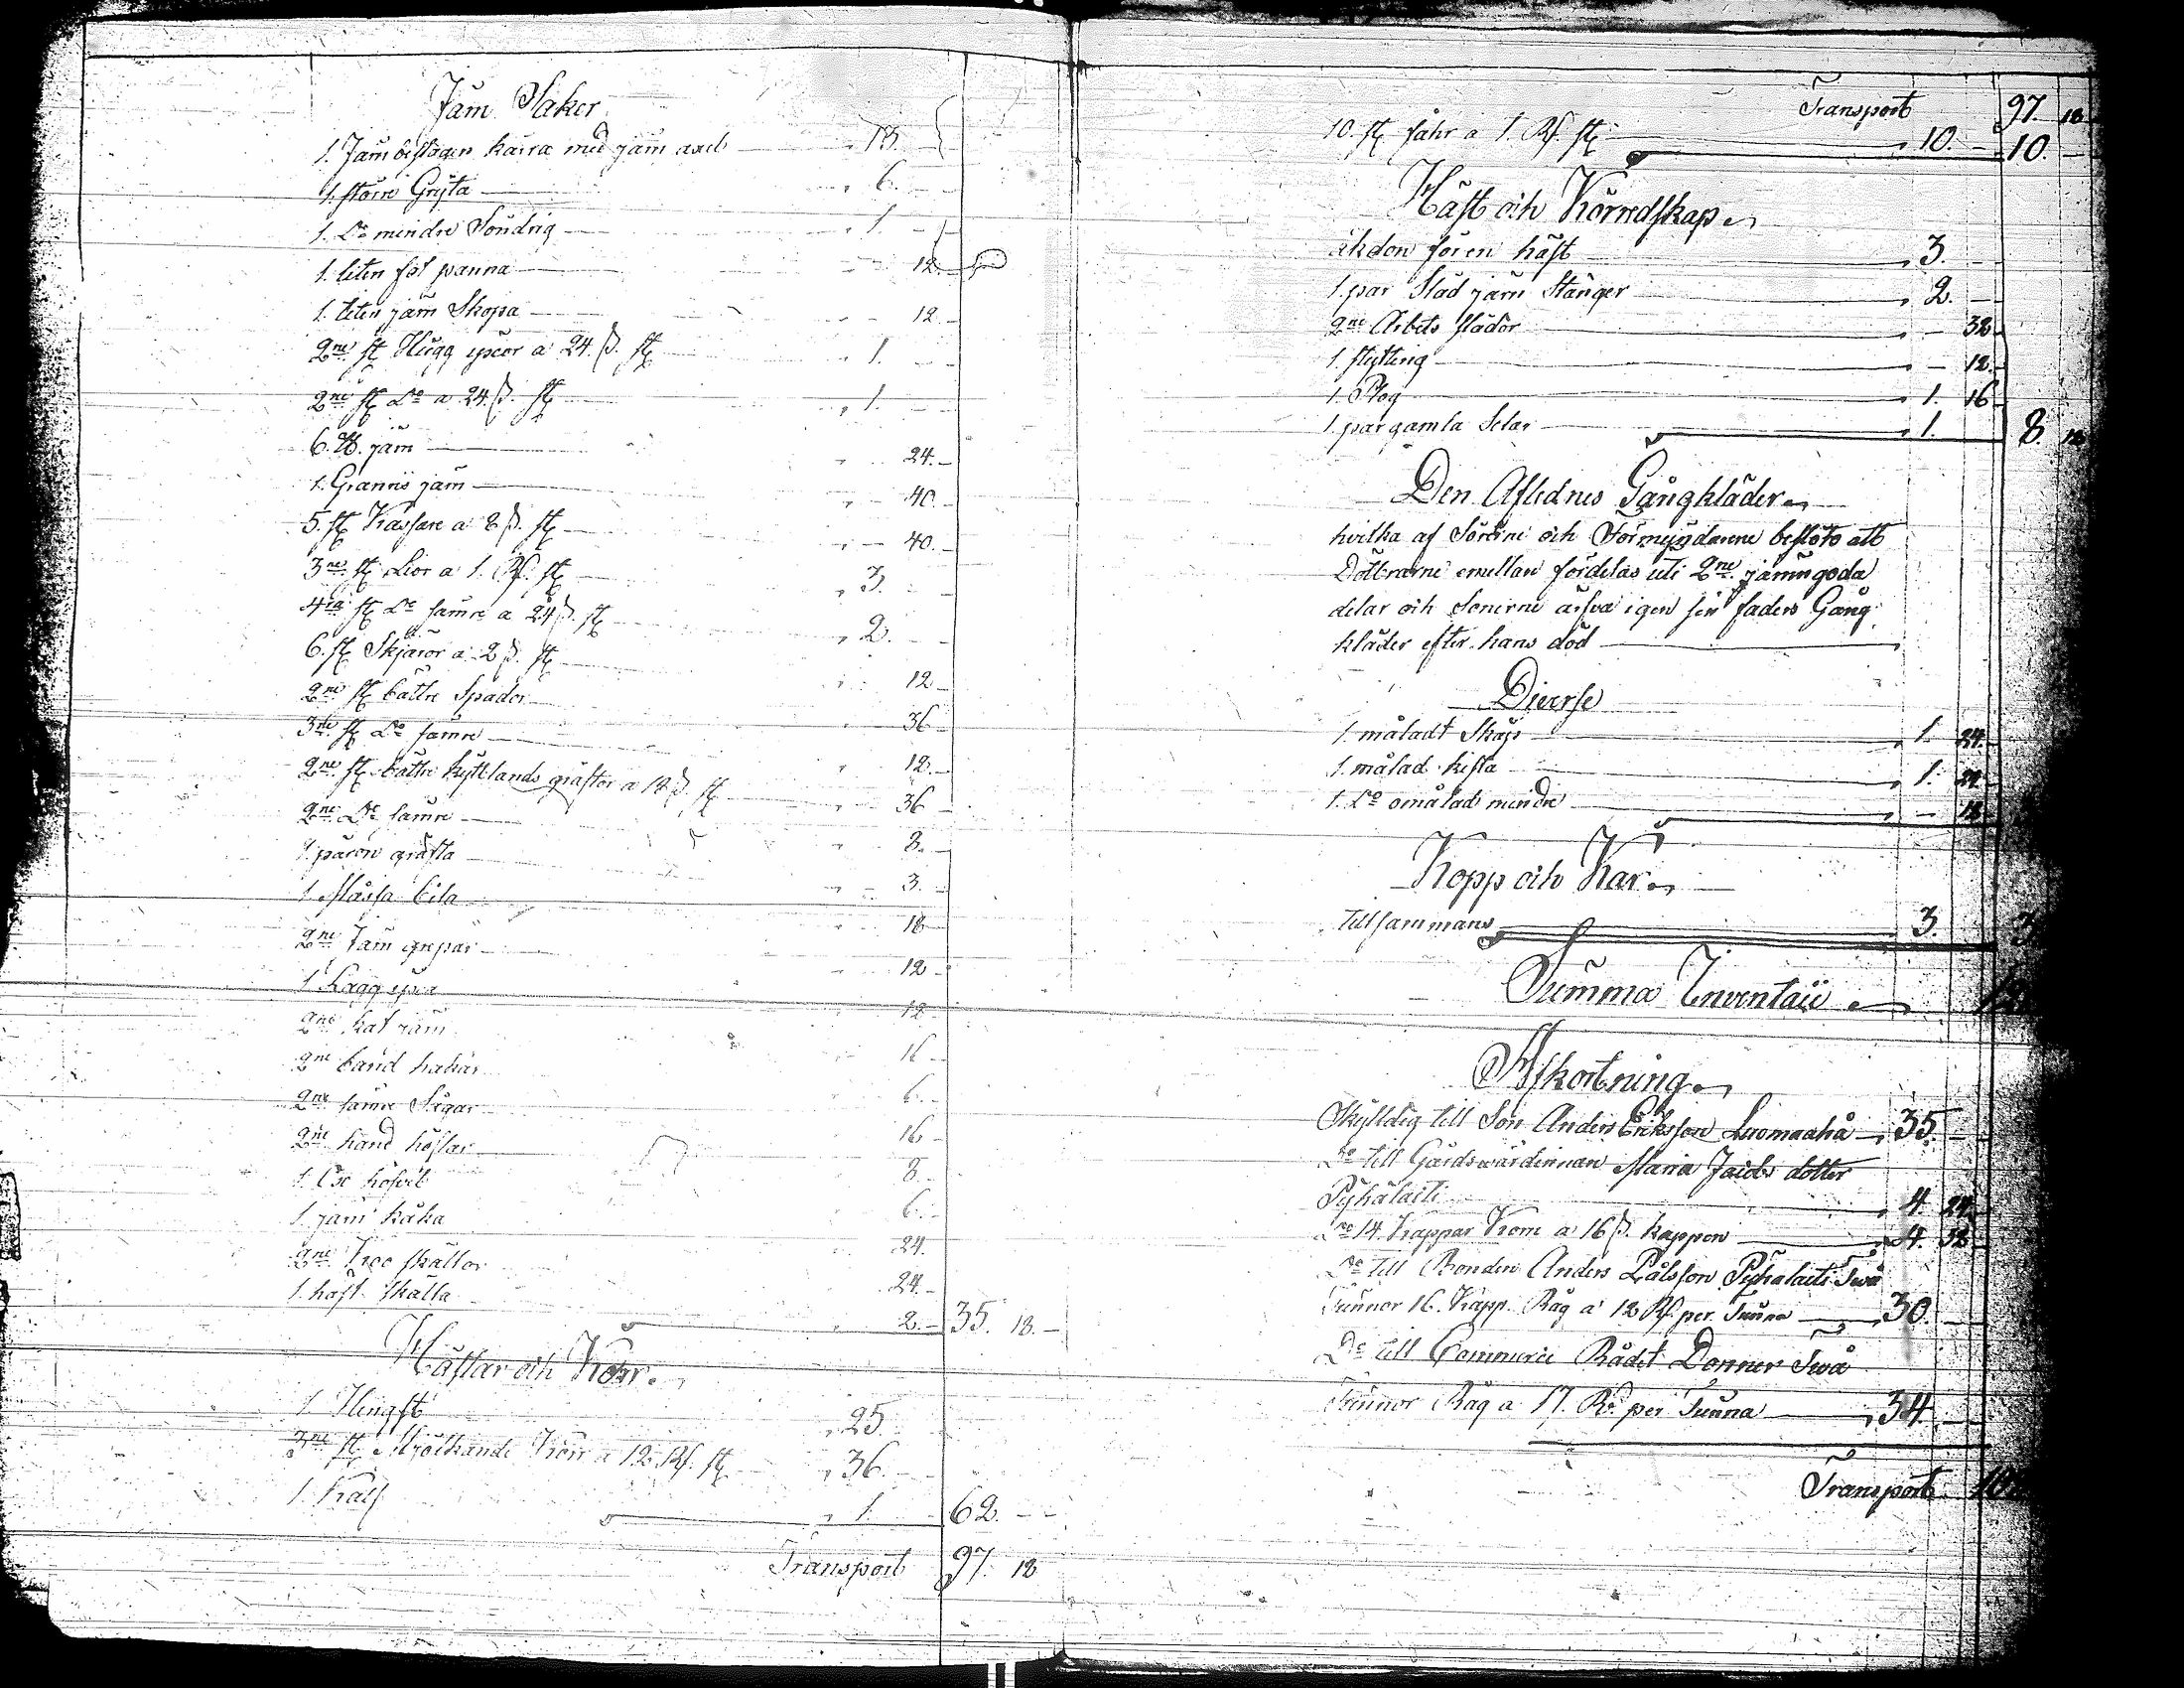 Järn Saker
1. Järnbeslagen kärra med järn axel 13.
1. större Gryta 6.
1. Do mindre Söndrig 1.
1. liten fot panna 12.
1. liten järn Skopa 12.
2ne st Hugg yxor a 24. ß. st 1.
2ne st Do a 24. ß. st 1.
6. ℔. järn 24.
1. järn 40.
5. st Kassare a 8 ß. st 40.
3ne st Lior a 1. Rf. st 3.
4ra st Do sämre a 24 ß. st 2.
6. st Skjäror a 2 ß. st 12
2ne st bättre Spador 36
3ne st Do sämre 12.
2ne st bättre kyttlands gräftor a 18 ß st 36
2ne Do sämre 8.
1. päron gräfta 3.
1. bila 18
2ne Järn grepar 12
1 yxa 12
2ne järn 16
2ne band 6.
2ne sämre Sågar 16
2ne hand höflar 8
1. 6.
1. järn kaka 24.
2ne koo skällor 24.
1. häst skälla 2. 35. 18.
Hästar och Kor
1 Hingst 25.
3ne st Mjölkande Kor a 12 Rf. st 36.
1. Kalf 1. 62.
Transport 97. 18
Transport 97. 18
10. st fåhr a 1. Rf. st 10. 10.
Häst och Körredskap
åkdon för en häst 3.
1. par Släd järn Stänger 2.
2ne Arbets slädor 32
1. slytting 12.
1. Plog 1. 16
1. par gamla Selar 1. 8. 12
Den Aflednes Gångkläder
hvilka af Sönerne och Förmyndarene beslöts att
Döttrarne emellan fördelas uti 2ne jämngoda
delar och Sönerne ärfva igen sin faders Gång
kläder efter hans död
Diverse
1. måladt Skåp 1. 24.
1. målad kista 1. 24
1. Do omålad mindre 18
Kopp och Kar
tillsammans 3. 3
Summa Inventarii
Afkortning
Skylldig till Son Anders Eriksson Luomaaho 35.
Do till Gårdswärdinnan Maria Jacobs dotter
Pyhälaiti 4. 24
Do 14. Kappar Korn a 16 ß. kappen 4. 32
Do till Bonden Anders Pålsson Pyhälaiti Twå
Tunnor 16. Kapp. Råg a 12 Rf. per Tunna 30
Do till Commerce Rådet Donner Twå
Tunnor Råg a 17. Rf. per Tunna 34.
Transport